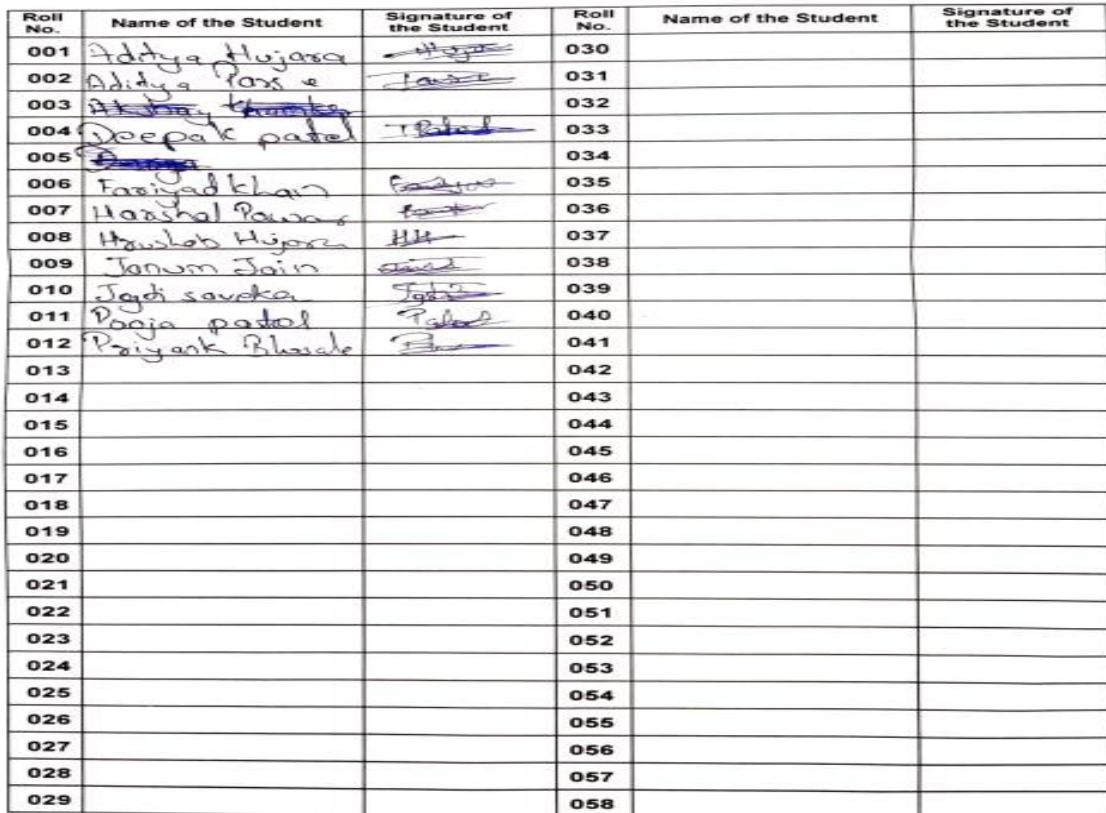 Roll No. Name of the Student Signature of the Student Roll No. Name of the Student Signature of the Student
001 Aditya Hujara 030
002 Aditya 031
003 032
004 Deepak patel Patel 033
005 034
006 Fariyad Khan 035
007 Harshal Pawar 036
008 Hrushab Hujara HH 037
009 Janum Jain 038
010 Jgdi 039
011 Pooja patel Patel 040
012 Priyank Bhosale 041
013 042
014 043
015 044
016 045
017 046
018 047
019 048
020 049
021 050
022 051
023 052
024 053
025 054
026 055
027 056
028 057
029 058